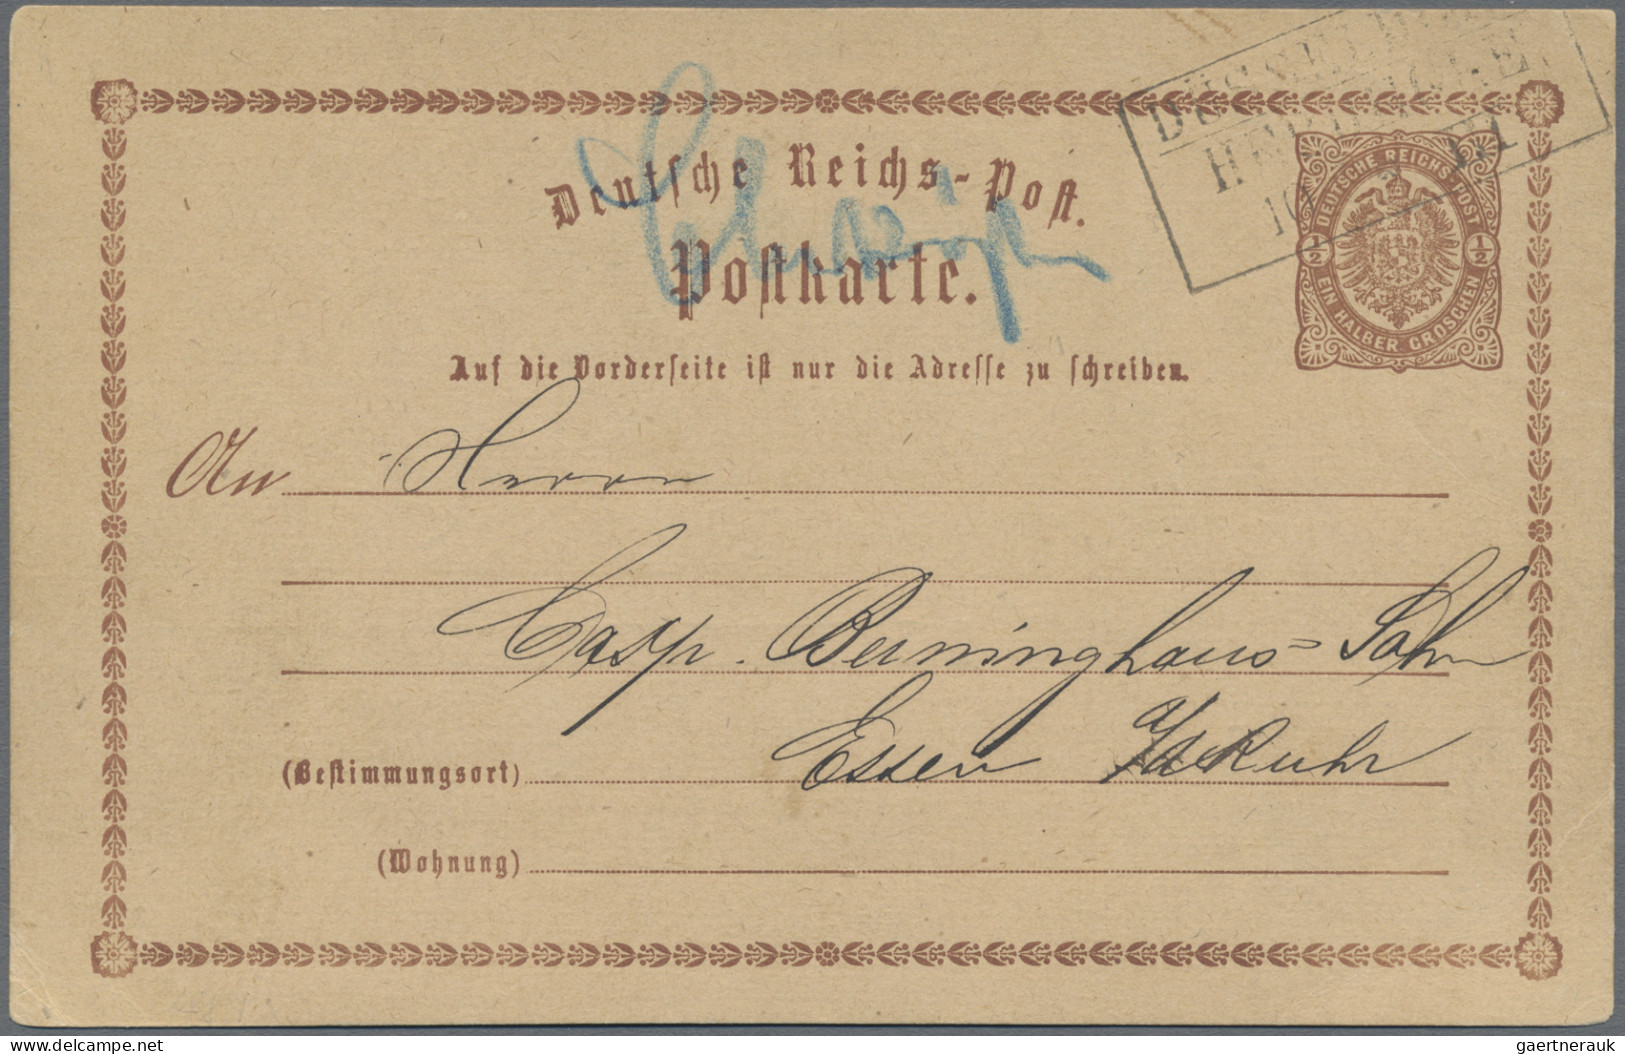 Deutsche Reichs-Post.
Postkarte.
DEUTSCHE REICHS-POST
1/2 1/2
EIN HALBER GROSCHEN
Auf die Vorderseite ist nur die Adresse zu schreiben.
An Herrn
Casp. Berninghaus Sohn
(Bestimmungsort) Essen a/d Ruhr
(Wohnung)
gaertnerauk